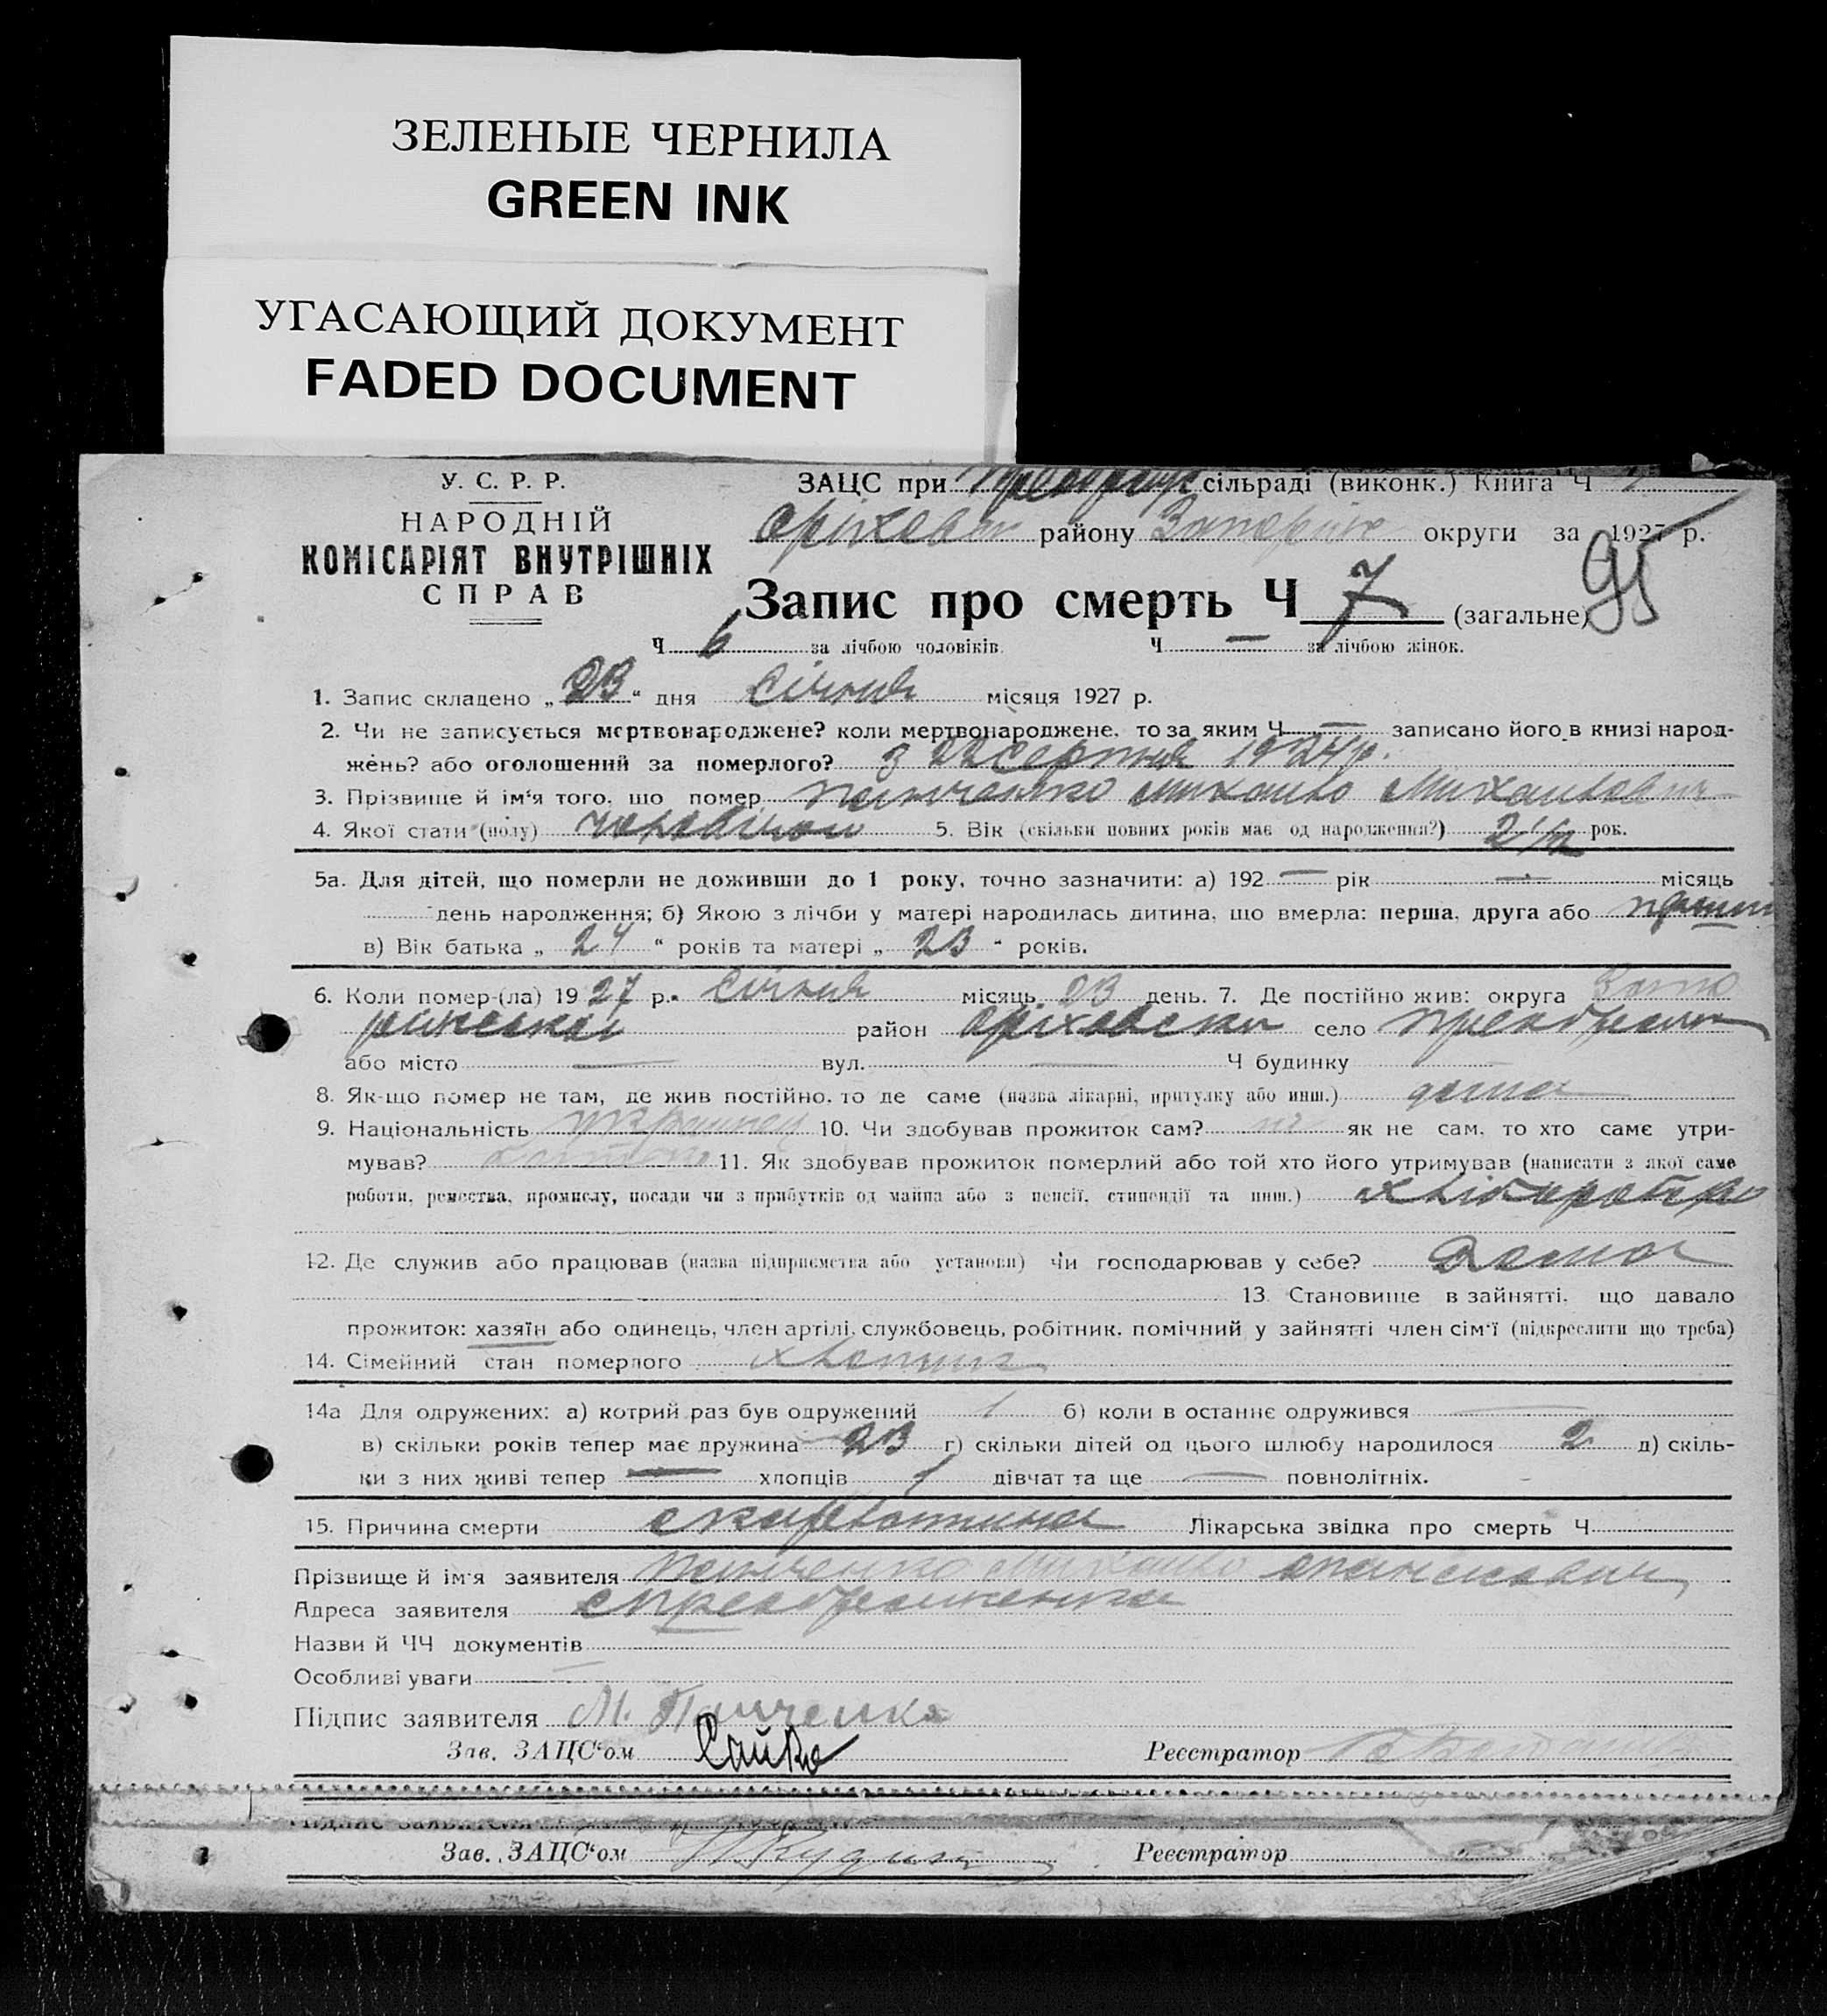 ЗЕЛЕНЫЕ ЧЕРНИЛА
GREEN INK
УГАСАЮЩИЙ ДОКУМЕНТ
FADED DOCUMENT
У. С. Р. Р.
НАРОДНІЙ
КОМІСАРІЯТ ВНУТРІШНІХ
СПРАВ
ЗАЦС при сільраді (виконк.) Книга Ч
району округи за 1927 р.
95
Запис про смерть Ч 7 (загальне)
Ч 6 за лічбою чоловіків. Ч — за лічбою жінок.
1. Запис складено „23“ дня Січня місяця 1927 р.
2. Чи не записується мертвонароджене? коли мертвонароджене, то за яким Ч — записано його в книзі народ-
жень? або оголошений за померлого? з 22 серпня 1924 р.
3. Прізвище й ім'я того, що помер Михайло Михайлович
4. Якої стати (полу) 5. Вік (скільки повних років має од народження?) 2 1/2 рок.
5а. Для дітей, що померли не доживши до 1 року, точно зазначити: а) 192 — рік — місяць
день народження; б) Якою з лічби у матері народилась дитина, що вмерла: перша, друга або
в) Вік батька „ 24 “ років та матері „ 23 “ років.
6. Коли помер-(ла) 1927 р. Січня місяць 23 день. 7. Де постійно жив: округа Запо
район Оріховски село
або місто — вул. — Ч будинку —
8. Як-що помер не там, де жив постійно, то де саме (назва лікарні, притулку або инш.) дома
9. Національність українец 10. Чи здобував прожиток сам? ні як не сам, то хто саме утри-
мував? 11. Як здобував прожиток померлий або той хто його утримував (написати з якої саме
роботи, ремества, промислу, посади чи з прибутків од майна або з пенсії, стипендії та инш.)
12. Де служив або працював (назва підприємства або установи) чи господарював у себе? Дома
13. Становище в зайнятті, що давало
прожиток: хазяїн або одинець, член артілі, службовець, робітник, помічний у зайнятті член сім'ї (підкреслити що треба)
14. Сімейний стан померлого
14а Для одружених: а) котрий раз був одружений 1 б) коли в останнє одружився —
в) скільки років тепер має дружина 23 г) скільки дітей од цього шлюбу народилося 2 д) скіль-
ки з них живі тепер — хлопців 1 дівчат та ще — повнолітніх.
15. Причина смерти скарлатина Лікарська звідка про смерть Ч
Прізвище й ім'я заявителя Михайло
Адреса заявителя
Назви й ЧЧ документів
Особливі уваги —
Підпис заявителя М.
Зав. ЗАЦС'ом Сайко Реєстратор
Підпис заявителя
Зав. ЗАЦС'ом Реєстратор